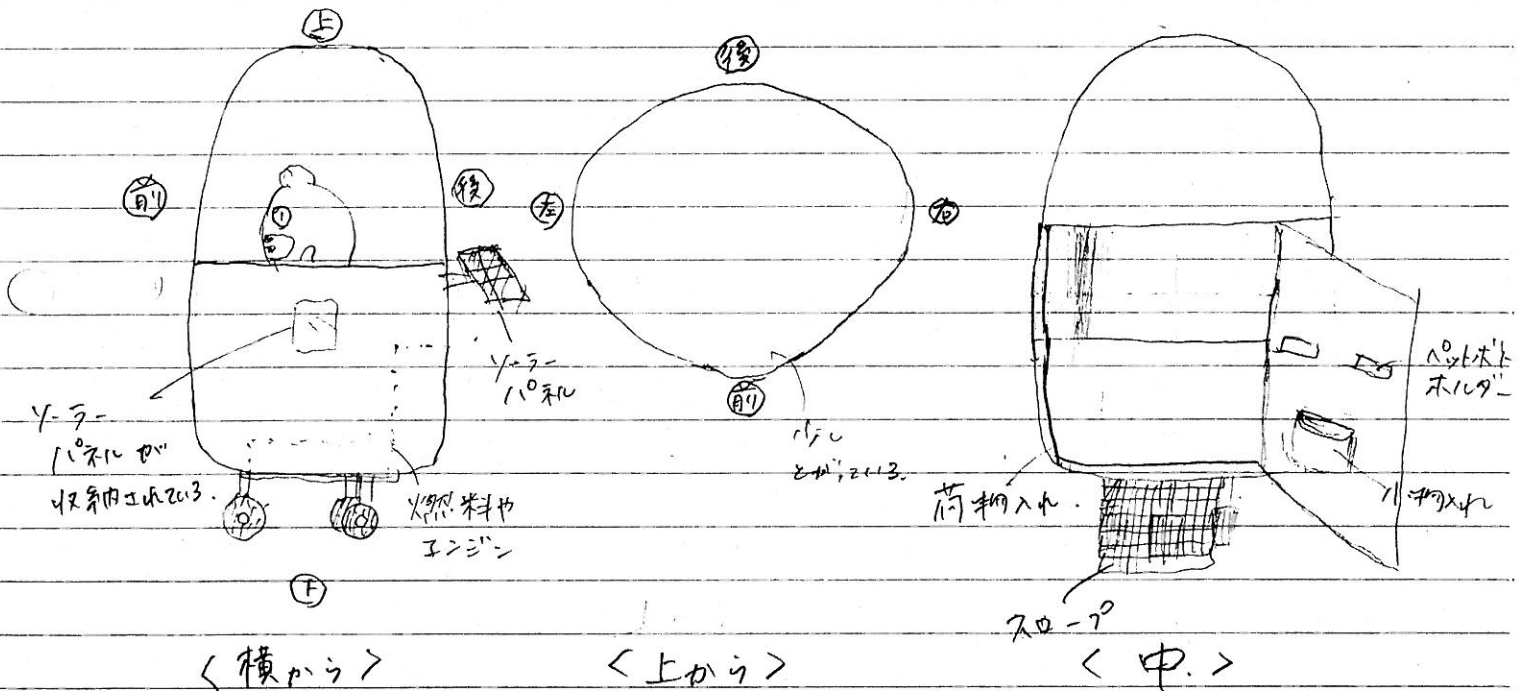 上
前
後
ソーラー
パネル
ソーラー
パネルが
収納されている.
燃料や
エンジン
下
<横から>
後
左
右
前
少し
とがっている.
<上から>
ペットボト
ホルダー
小物入れ
荷物入れ.
スロープ
<中.>